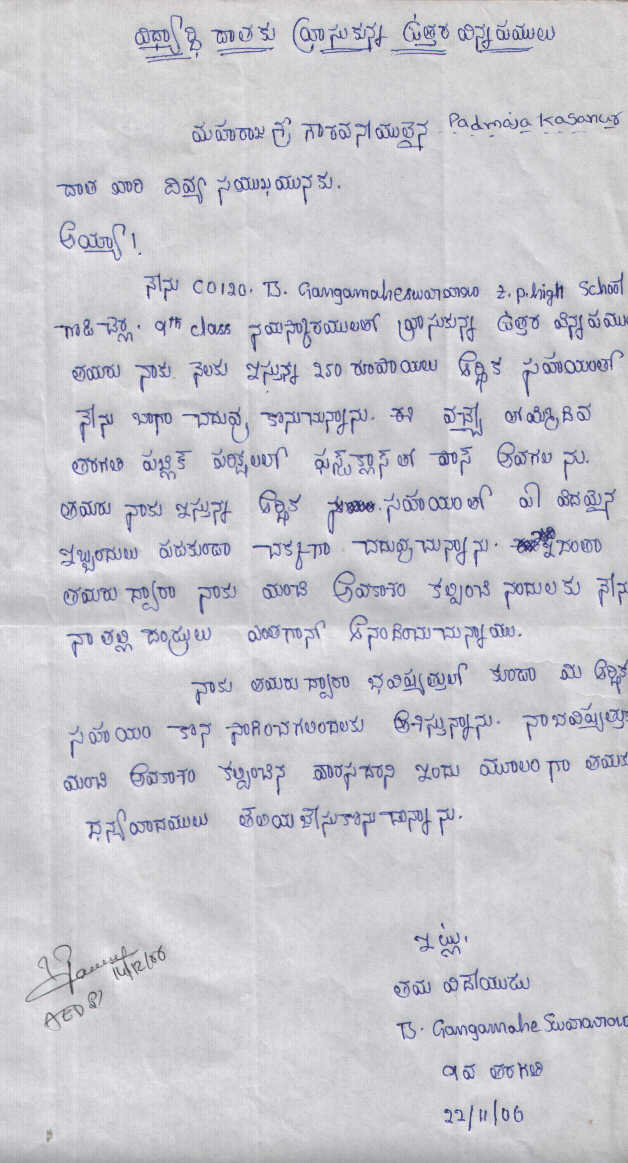 విద్యార్థి దాతకు వ్రాసుకున్న ఉత్తర విన్నపములు
మహారాజశ్రీ గౌరవనీయులైన Padmaja Kasanur
దాత వారి దివ్య సముఖమునకు.
అయ్యా!
నేను C0120. B. Gangamaheswararao z.p.high School
గాడిచెర్ల. 9th class నమస్కారములతో వ్రాసుకున్న ఉత్తర విన్నపము
తమరు నాకు నెలకు ఇస్తున్న 250 రూపాయలు ఆర్థిక సహాయంతో
నేను బాగా చదువు కొనుచున్నాను. ఈ వచ్చే
తరగతి పబ్లిక్ పరిక్షలలో ఫస్ట్ క్లాస్ లో పాస్ అవగలను.
తమరు నాకు ఇస్తున్న ఆర్థిక సహాయంతో ఏ విదమైన
ఇబ్బందులు పడకుండా చక్కగా చదువుచున్నాను. ఇదంతా
తమరు ద్వారా నాకు మంచి అవకాశం కల్పించినందులకు నేను
నా తల్లి దండ్రులు ఎంతగానో ఆనందించుచున్నాము.
నాకు తమరు ద్వారా భవిష్యత్తులో కుడా మీ ఆర్థిక
సహాయం కొన సాగించగలందులకు ఆశిస్తున్నాను. నా భవిష్యత్తుకు
మంచి అవకాశం కల్పించిన ఇందు మూలంగా తమకు
ధన్యవాదములు తెలియ చేసుకొనుచున్నాను.
ఇట్లు,
తమ విదేయుడు
B. Gangamaheswararao
9వ తరగతి
22/11/06
14/12/06